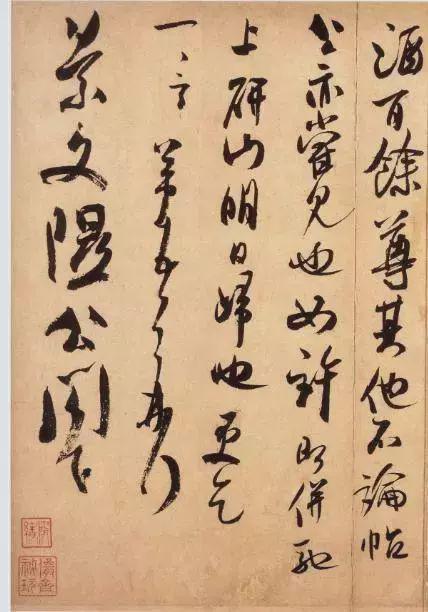 酒百餘尊其他不論帖
公亦嘗見也如許即併馳
上研山明日歸也更乞
一言 芾頓首再拜
景文隰公閤下